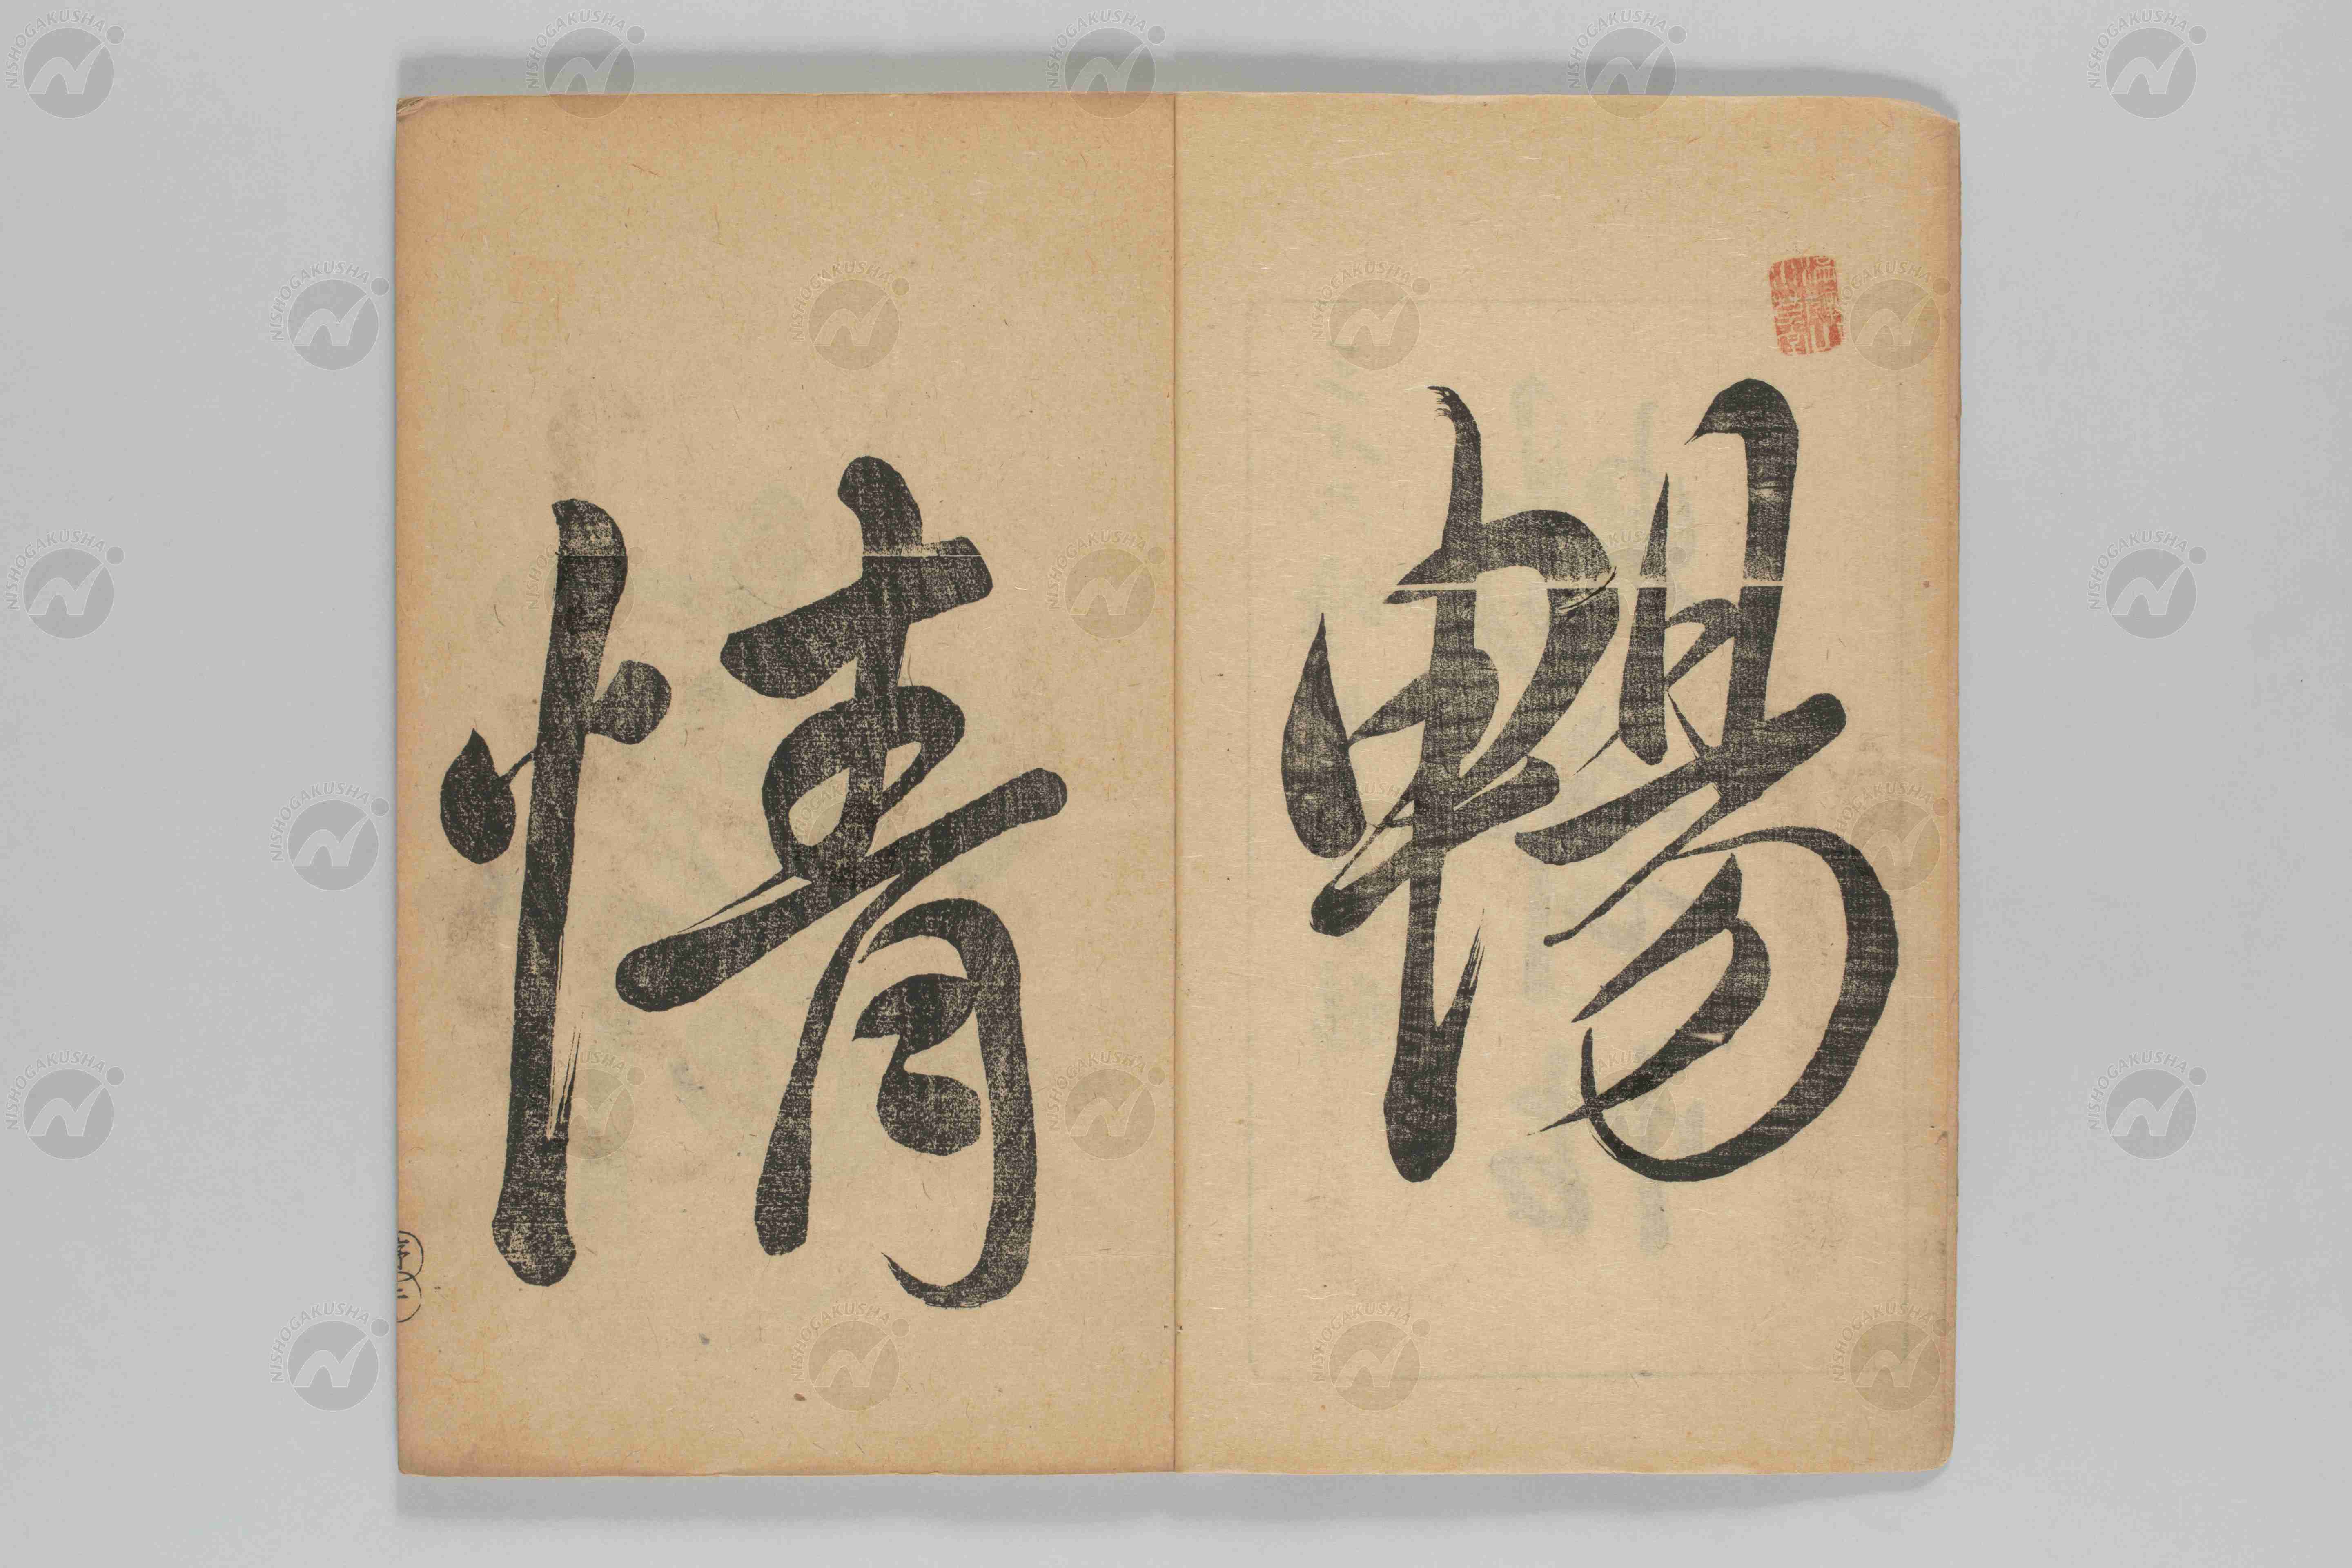 暢
情
NISHOGAKUSHA